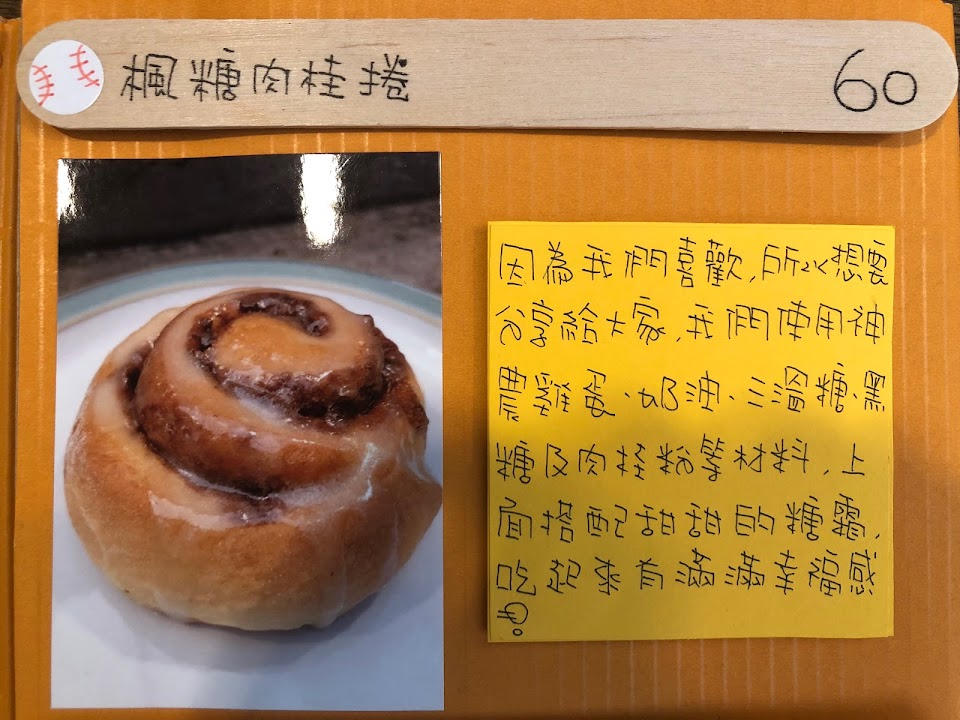 楓糖肉桂捲 60
因為我們喜歡,所以想要
分享給大家,我們使用神
農雞蛋、奶油、三溫糖、黑
糖及肉桂粉等材料,上
面搭配甜甜的糖霜,
吃起來有滿滿幸福感
喲。